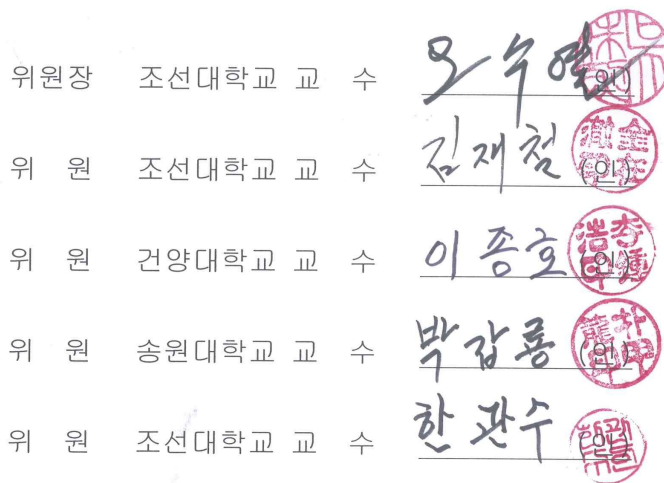 위원장 조선대학교 교 수 오수열 (인)
위 원 조선대학교 교 수 김재철 (인)
위 원 건양대학교 교 수 이종호 (인)
위 원 송원대학교 교 수 박갑룡 (인)
위 원 조선대학교 교 수 한관수 (인)